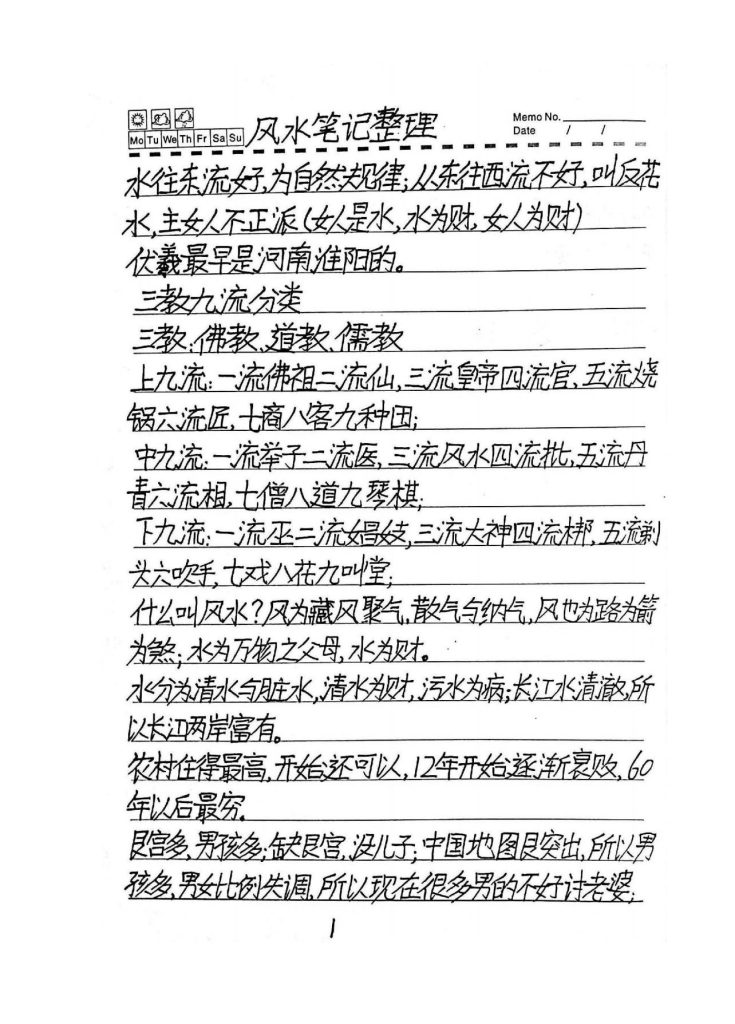 风水笔记整理
Memo No.
Mo Tu We Th Fr Sa Su
Date / /
水往东流好,为自然规律;从东往西流不好,叫反花
水,主女人不正派(女人是水,水为财,女人为财)
伏羲最早是河南淮阳的。
三教九流分类
三教:佛教、道教、儒教
上九流:一流佛祖二流仙,三流皇帝四流官、五流烧
锅六流匠,七商八客九种田;
中九流:一流举子二流医,三流风水四流批,五流丹
青六流相,七僧八道九琴棋;
下九流:一流巫二流娼妓,三流大神四流梆,五流剃
头六吹手,七戏八花九叫堂;
什么叫风水?风为藏风聚气,散气与纳气,风也为路为箭
为煞;水为万物之父母,水为财。
水分为清水与脏水,清水为财,污水为病;长江水清澈,所
以长江两岸富有。
农村住得最高,开始还可以,12年开始逐渐衰败,60
年以后最穷。
艮宫多,男孩多;缺艮宫,没儿子;中国地图艮突出,所以男
孩多,男女比例失调,所以现在很多男的不好讨老婆;
1